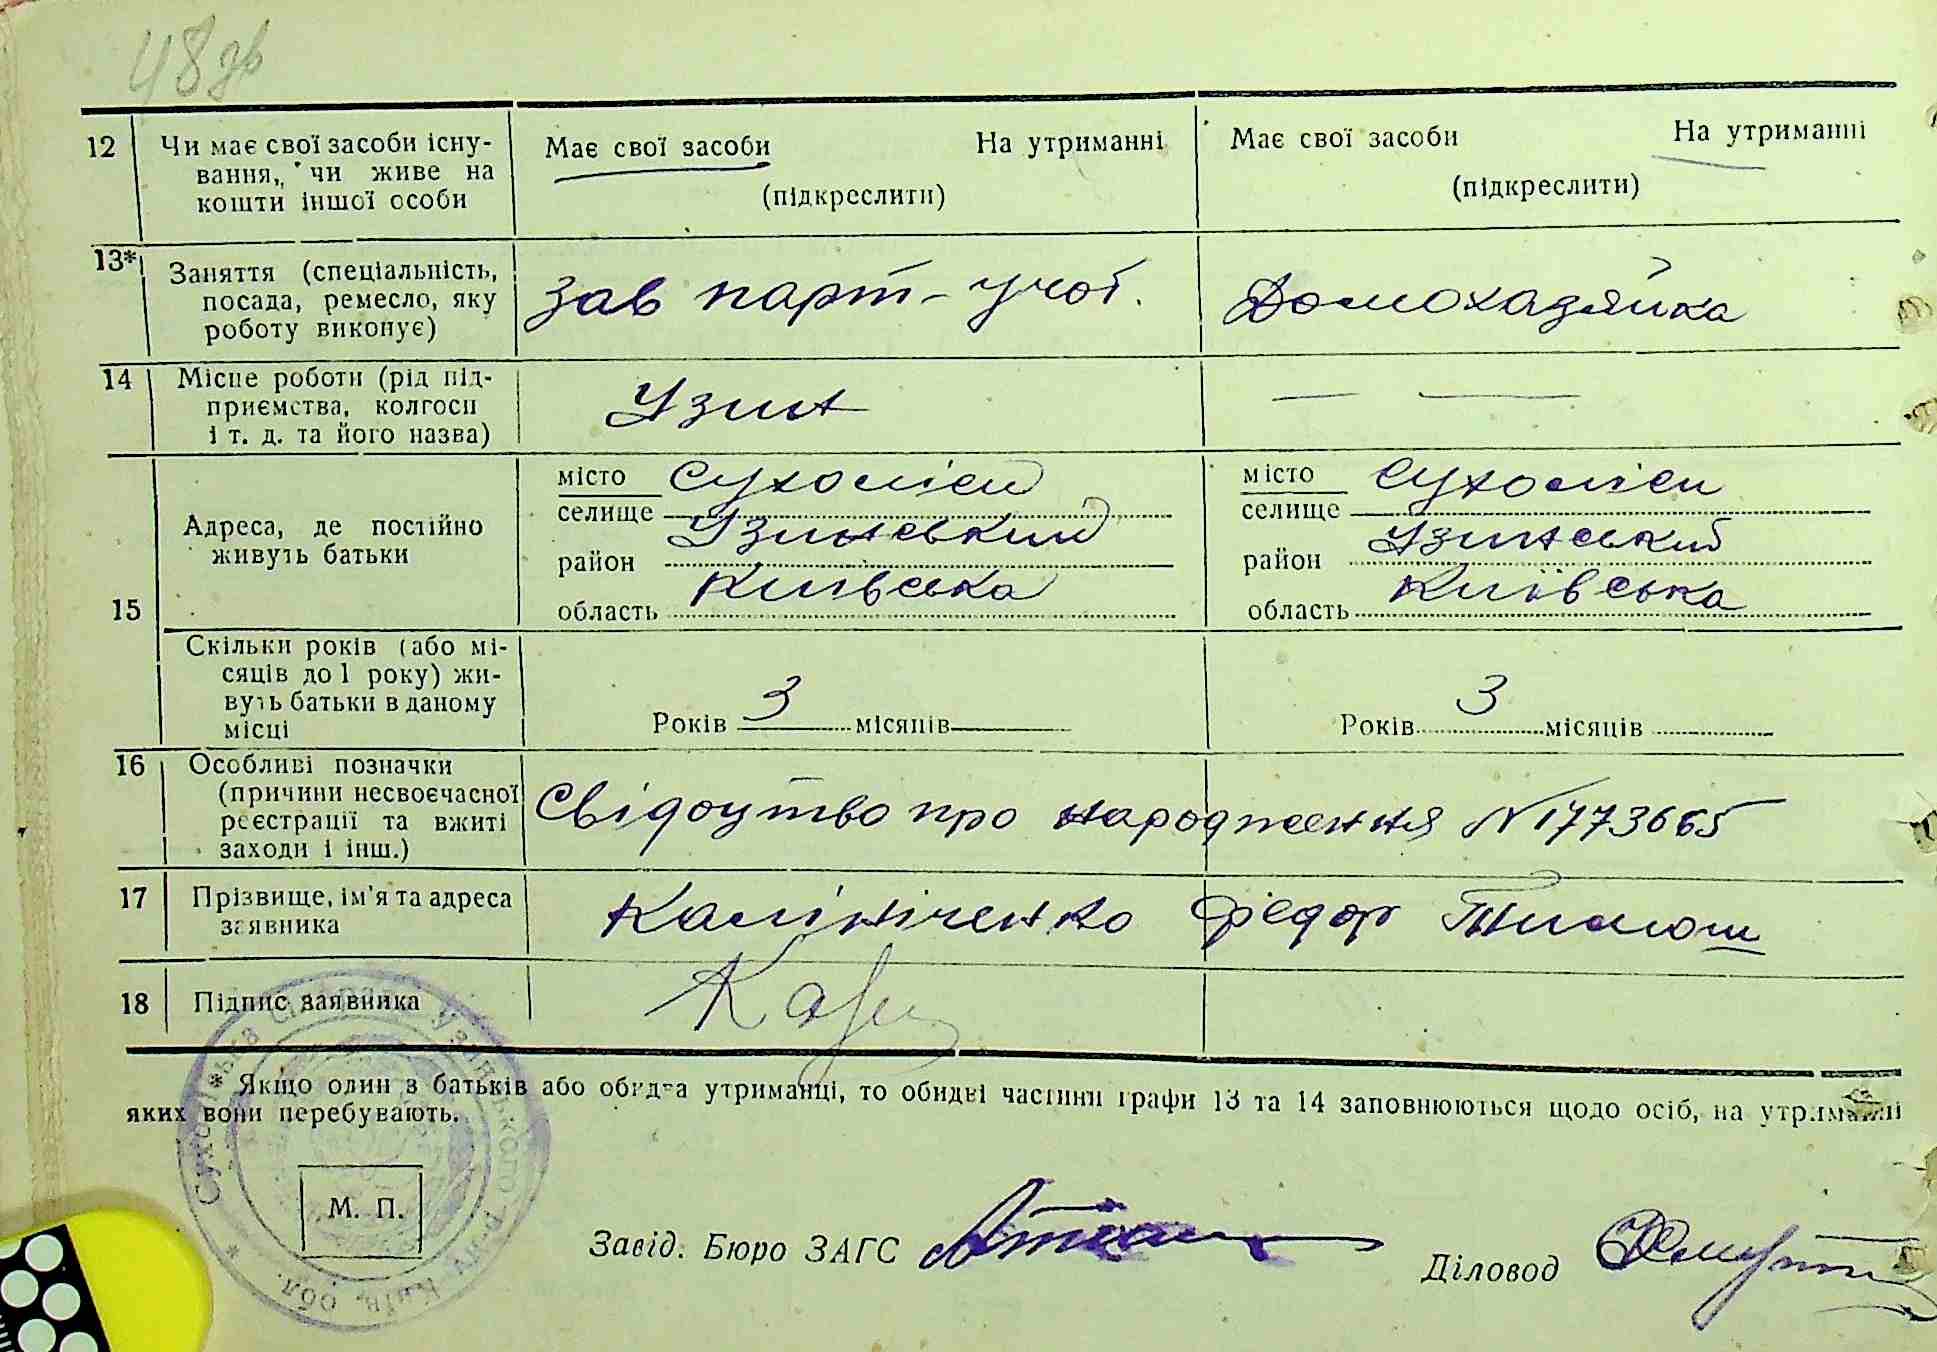 48 зв
12 Чи має свої засоби існу-
вання, чи живе на
кошти іншої особи
Має свої засоби На утриманні
(підкреслити)
Має свої засоби На утриманні
(підкреслити)
13* Заняття (спеціальність,
посада, ремесло, яку
роботу виконує)
Зав парт-учот.
Домохадзяйка
14 Місце роботи (рід під-
приємства, колгосп
і т. д. та його назва)
Узин
— —
15 Адреса, де постійно
живуть батьки
місто Сухоліси
селище
Узинський
район
Київська
область
місто Сухоліси
селище
Узинський
район
Київська
область
Скільки років (або мі-
сяців до 1 року) жи-
вуть батьки в даному
місці
Років 3 місяців
Років 3 місяців
16 Особливі позначки
(причини несвоєчасної
реєстрації та вжиті
заходи і інш.)
Свідоцтво про народження N 1773665
17 Прізвище, ім'я та адреса
заявника
Калініченко Федор Тимош
18 Підпис заявника
* Якщо один з батьків або обидва утриманці, то обидві частини графи 13 та 14 заповнюються щодо осіб, на утриманні
яких вони перебувають.
М. П.
Завід. Бюро ЗАГС
Діловод